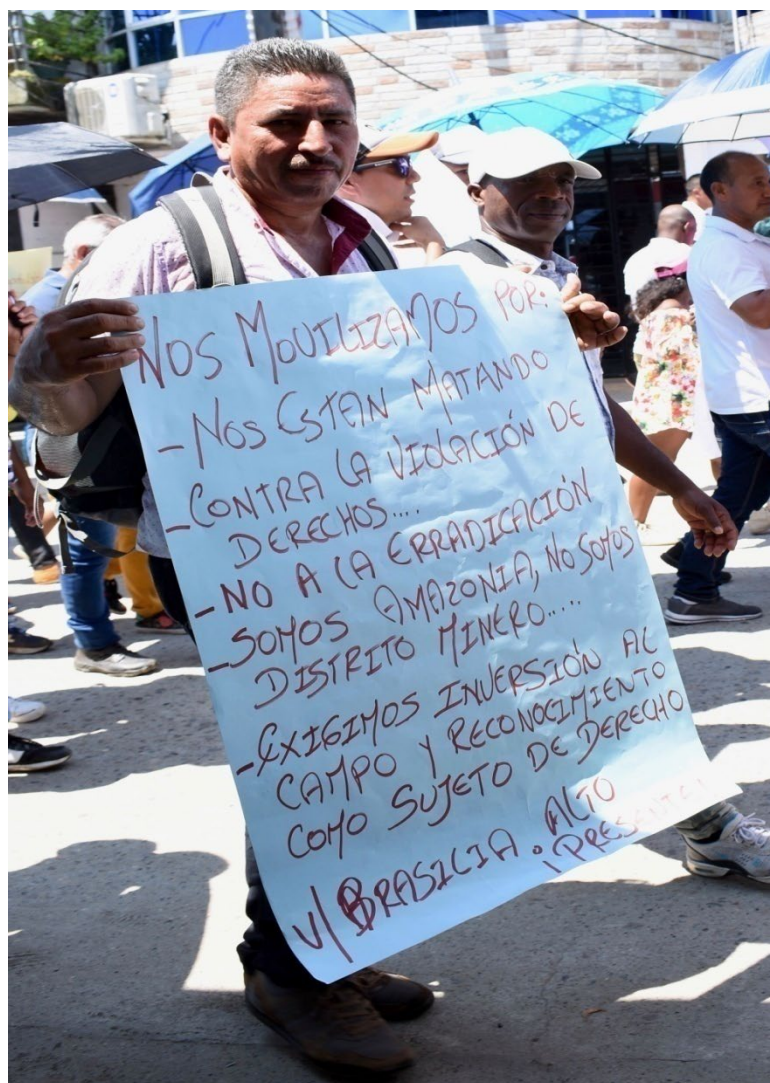 NOS MOVILIZAMOS POR:
- NOS ESTAN MATANDO
- CONTRA LA VIOLACIÓN DE
DERECHOS....
- NO A LA ERRADICACIÓN
- SOMOS AMAZONIA, NO SOMOS
DISTRITO MINERO.....
- EXIGIMOS INVERSIÓN AL
CAMPO Y RECONOCIMIENTO
COMO SUJETO DE DERECHO
V/ BRASILIA. ALTO
¡PRESENTE!